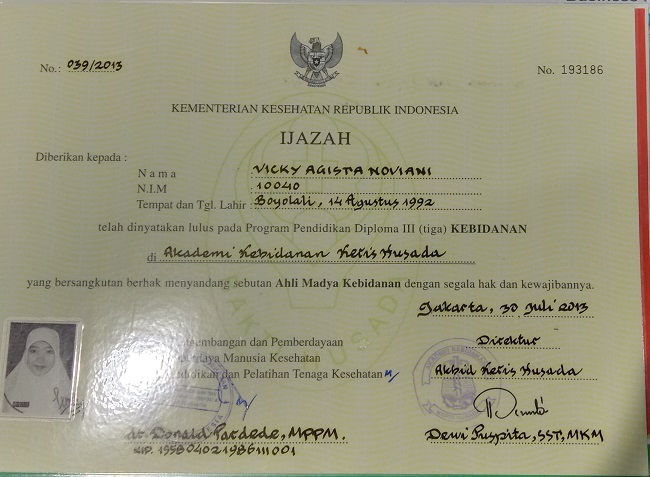 No.: 039/2013
No. 193186
KEMENTERIAN KESEHATAN REPUBLIK INDONESIA
IJAZAH
Diberikan kepada :
Nama : VICKY AGISTA NOVIANI
N.I.M : 10040
Tempat dan Tgl. Lahir : Boyolali, 14 Agustus 1992
telah dinyatakan lulus pada Program Pendidikan Diploma III (tiga) KEBIDANAN
di Akademi Kebidanan Keris Husada
yang bersangkutan berhak menyandang sebutan Ahli Madya Kebidanan dengan segala hak dan kewajibannya.
Jakarta, 30 Juli 2013
embangan dan Pemberdayaan
daya Manusia Kesehatan
didikan dan Pelatihan Tenaga Kesehatan
dr. Donald Pardede, MPPM.
NIP. 195804021986111001
Direktur
Akbid Keris Husada
Dewi Puspita, SST, MKM